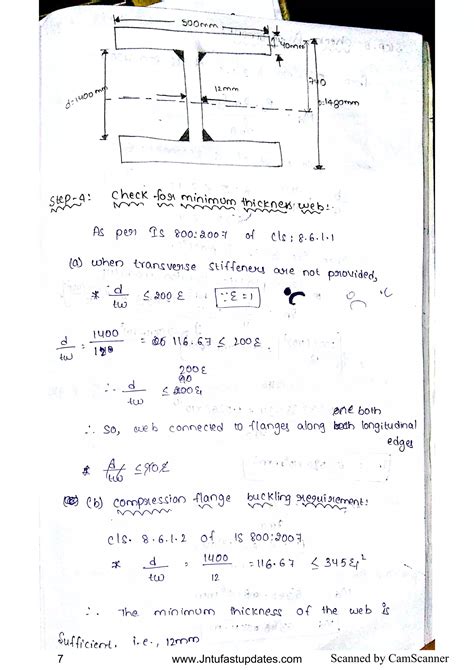 500mm
40mm
12mm
740
d=1400mm
D=1480mm
Step-4: Check for minimum thickness web:
As per Is 800:2007 of cls: 8.6.1.1
(a) when transverse stiffeners are not provided,
* d/tw ≤ 200ε [∵ε=1]
d/tw = 1400/12 = 116.67 ≤ 200ε
200ε
∴ d/tw ≤ 200ε
one both
∴ So, web connected to flanges along both longitudinal
edges
* d/tw ≤ 90ε
(b) compression flange buckling requirement:
cls. 8.6.1.2 of IS 800:2007
* d/tw = 1400/12 = 116.67 ≤ 345ε²
∴ The minimum thickness of the web is
sufficient. i.e., 12mm
7
www.Jntufastupdates.com
Scanned by CamScanner